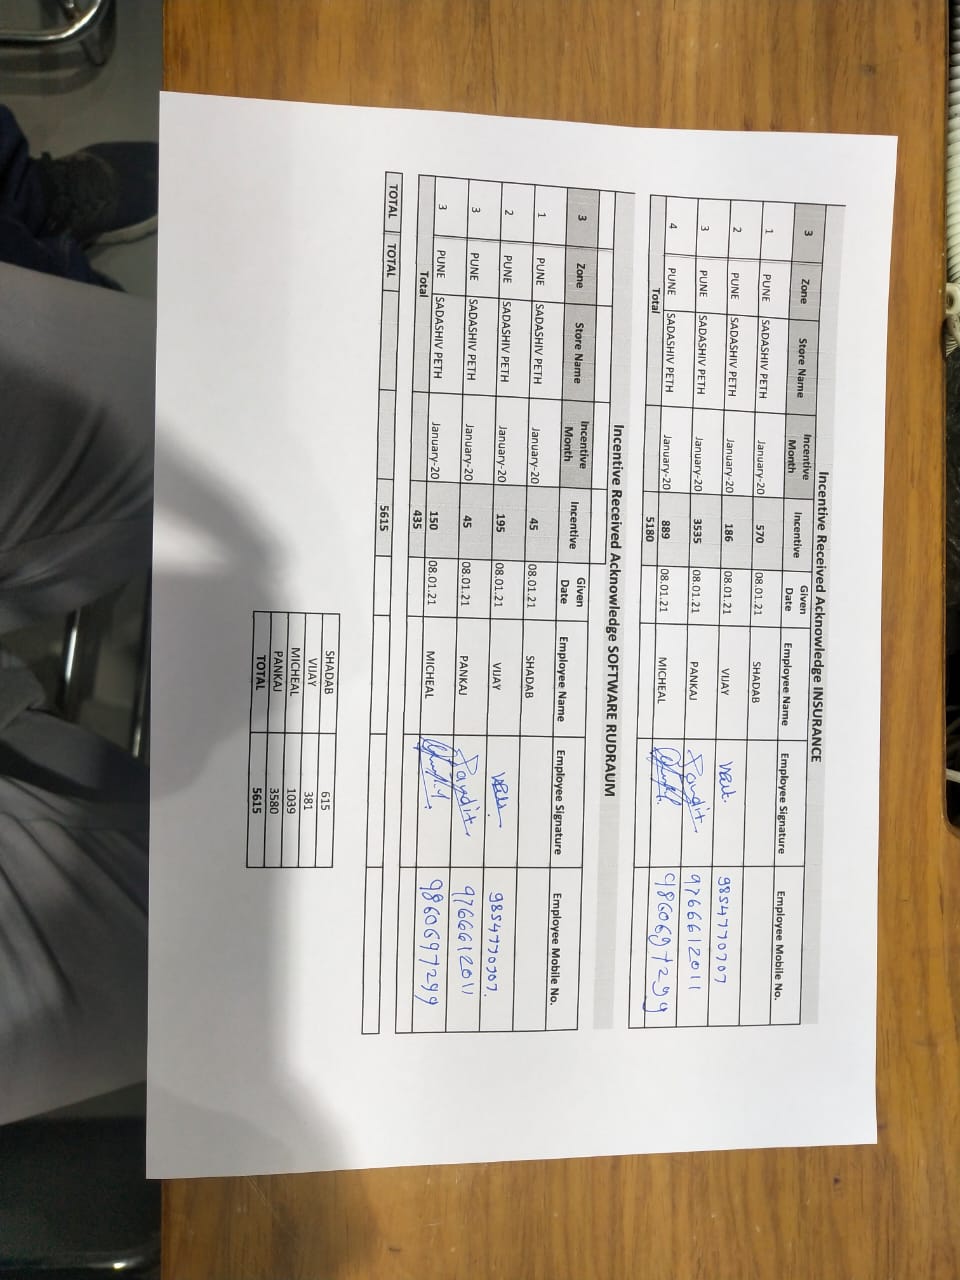 Incentive Received Acknowledge INSURANCE
3 Zone Store Name Incentive Month Incentive Given Date Employee Name Employee Signature Employee Mobile No.
1 PUNE SADASHIV PETH January-20 570 08.01.21 SHADAB
2 PUNE SADASHIV PETH January-20 186 08.01.21 VIJAY 9854770707
3 PUNE SADASHIV PETH January-20 3535 08.01.21 PANKAJ Pandit 9766612011
4 PUNE SADASHIV PETH January-20 889 08.01.21 MICHEAL 9860697299
Total 5180
Incentive Received Acknowledge SOFTWARE RUDRAUM
3 Zone Store Name Incentive Month Incentive Given Date Employee Name Employee Signature Employee Mobile No.
1 PUNE SADASHIV PETH January-20 45 08.01.21 SHADAB
2 PUNE SADASHIV PETH January-20 195 08.01.21 VIJAY 9854770707.
3 PUNE SADASHIV PETH January-20 45 08.01.21 PANKAJ Pandit 9766612011
3 PUNE SADASHIV PETH January-20 150 08.01.21 MICHEAL 9860697299
Total 435
TOTAL TOTAL 5615
SHADAB 615
VIJAY 381
MICHEAL 1039
PANKAJ 3580
TOTAL 5615